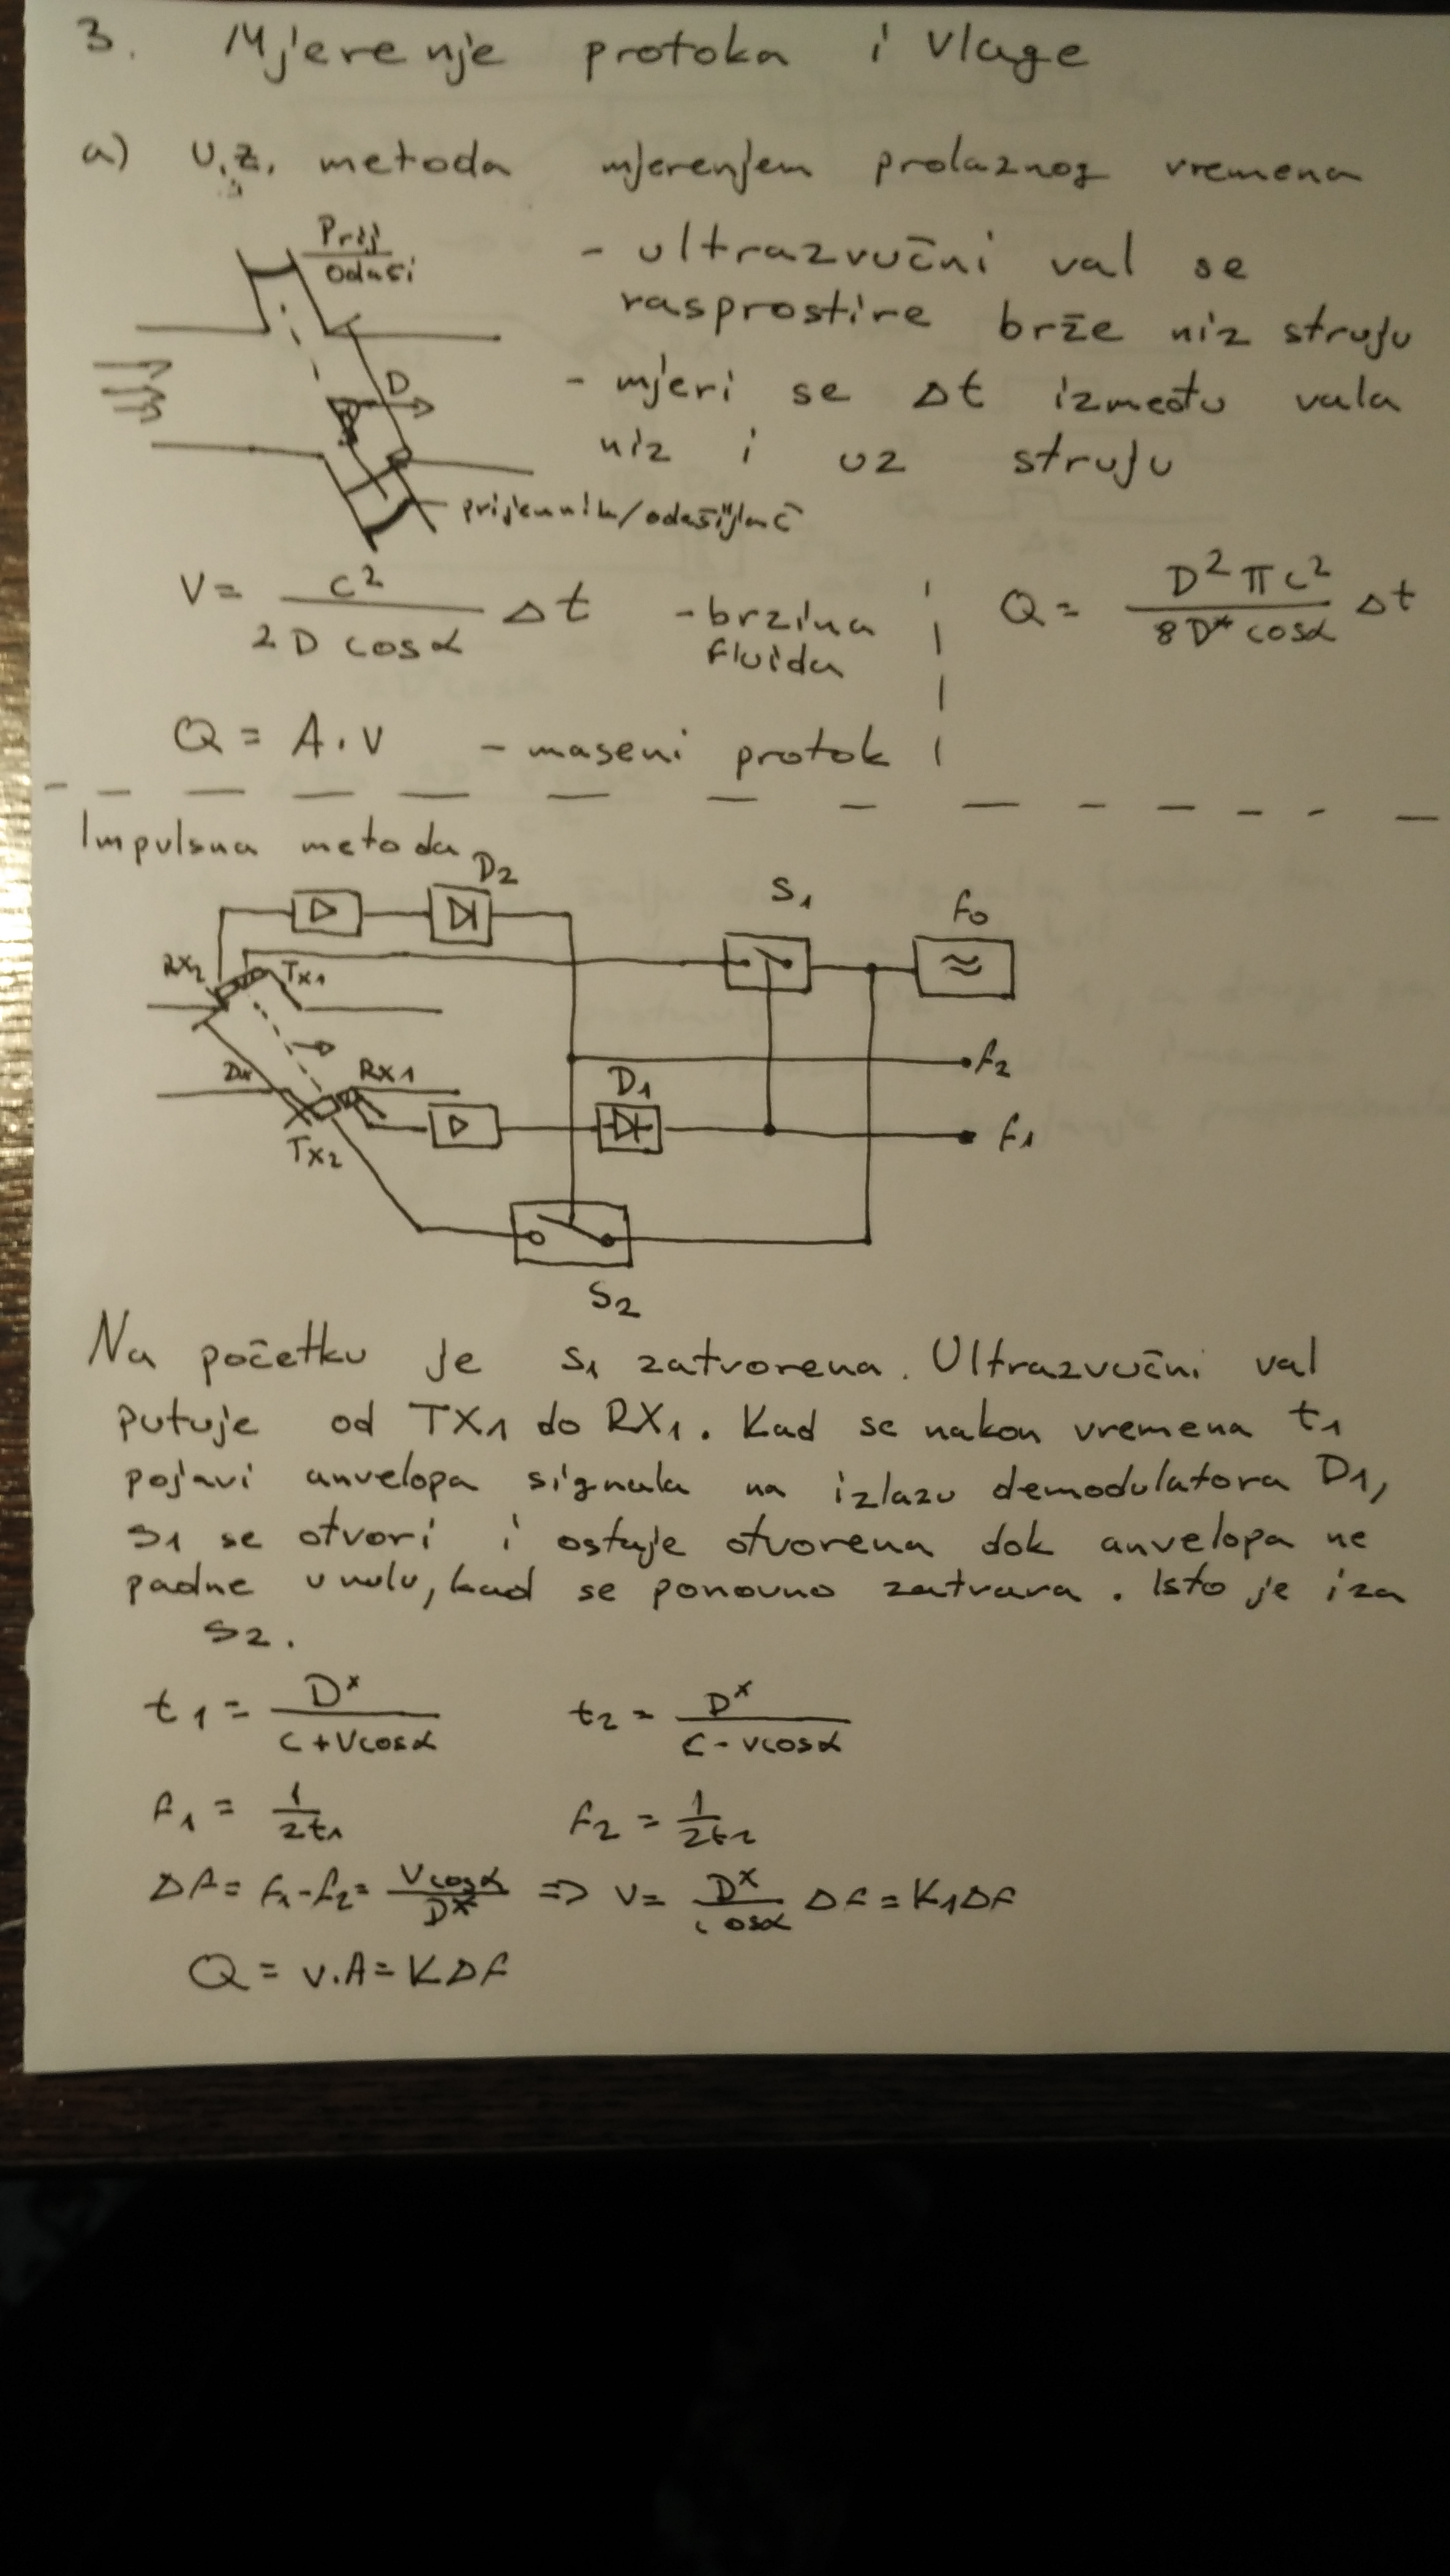 3. Mjerenje protoka i vlage
a) U.z. metoda mjerenjem prolaznog vremena
Prij
odaši
- ultrazvučni val se
rasprostire brže niz struju
- mjeri se Δt između vala
niz i uz struju
D
prijemnik/odašiljač
V = c² / 2 D cosα Δt - brzina
fluida
Q = D² π c² / 8 D* cosα Δt
Q = A · v - maseni protok
Impulsna metoda
D2
S1
f0
RX2
TX1
≈
f2
RX1
D1
TX2
f1
S2
Na početku je S1 zatvorena. Ultrazvučni val
putuje od TX1 do RX1. Kad se nakon vremena t1
pojavi anvelopa signala na izlazu demodulatora D1,
S1 se otvori i ostaje otvorena dok anvelopa ne
padne u nulu, kad se ponovno zatvara. Isto je i za
S2.
t1 = Dˣ / c + v cosα t2 = Dˣ / c - v cosα
f1 = 1 / 2t1 f2 = 1 / 2t2
Δf = f1 - f2 = v cosα / Dˣ => v = Dˣ / cosα Δf = K1 Δf
Q = v.A = K Δf